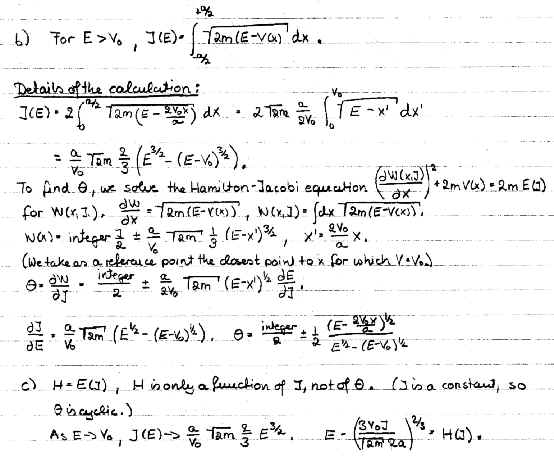 b) For E > V₀, J(E) = ∫_{-a/2}^{+a/2} √2m(E-V(x)) dx.
Details of the calculation:
J(E) = 2∫_0^{a/2} √2m(E - 2V₀x/a) dx = 2√2m a/2V₀ ∫_0^{V₀} √E - x' dx'
= a/V₀ √2m 2/3 (E^{3/2} - (E-V₀)^{3/2}).
To find θ, we solve the Hamilton-Jacobi equation (∂W(x,J)/∂x)² + 2mV(x) = 2mE(J)
for W(x,J). ∂W/∂x = √2m(E-V(x)), W(x,J) = ∫dx √2m(E-V(x)).
W(x) = integer J/2 ± a/V₀ √2m 1/3 (E-x')^{3/2}, x' = 2V₀/a x.
(We take as a reference point the closest point to x for which V=V₀.)
θ = ∂W/∂J = integer/2 ± a/2V₀ √2m (E-x')^{1/2} ∂E/∂J.
∂J/∂E = a/V₀ √2m (E^{1/2} - (E-V₀)^{1/2}). θ = integer/2 ± 1/2 (E - 2V₀x/a)^{1/2} / E^{1/2} - (E-V₀)^{1/2}
c) H = E(J), H is only a function of J, not of θ. (J is a constant, so
θ is cyclic.)
As E → V₀, J(E) → a/V₀ √2m 2/3 E^{3/2}. E = (3V₀J/√2m 2a)^{2/3} = H(J).